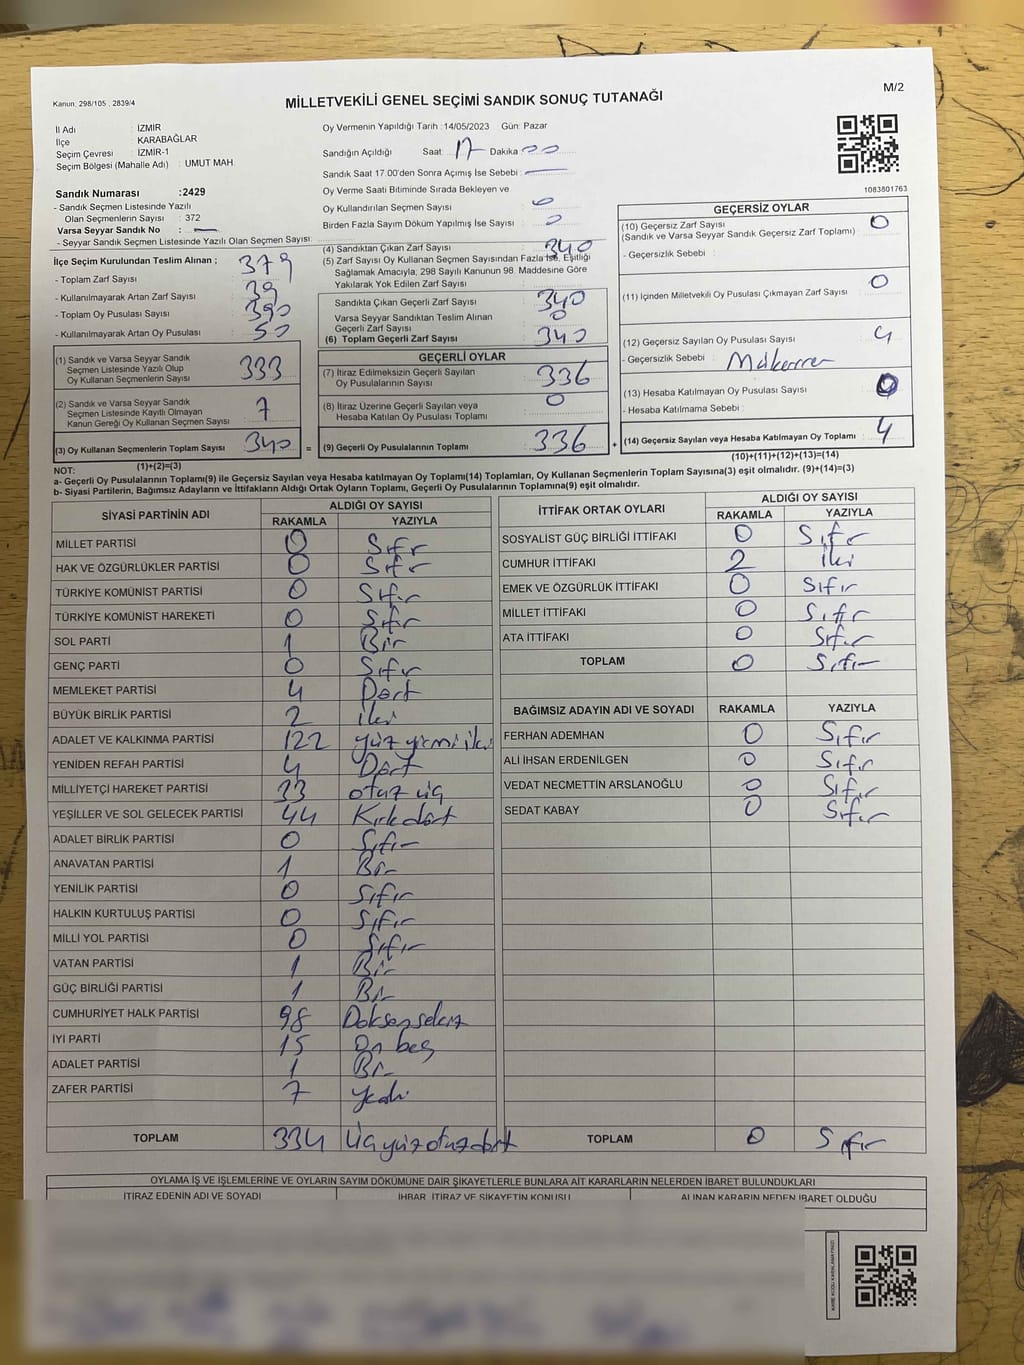 Kanun: 298/105 , 2839/4
MİLLETVEKİLİ GENEL SEÇİMİ SANDIK SONUÇ TUTANAĞI
M/2
İl Adı : İZMİR
İlçe : KARABAĞLAR
Seçim Çevresi : İZMİR-1
Seçim Bölgesi (Mahalle Adı) : UMUT MAH.
Sandık Numarası :2429
- Sandık Seçmen Listesinde Yazılı
Olan Seçmenlerin Sayısı : 372
Varsa Seyyar Sandık No :
- Seyyar Sandık Seçmen Listesinde Yazılı Olan Seçmen Sayısı:
İlçe Seçim Kurulundan Teslim Alınan ;
- Toplam Zarf Sayısı : 379
- Kullanılmayarak Artan Zarf Sayısı : 39
- Toplam Oy Pusulası Sayısı : 390
- Kullanılmayarak Artan Oy Pusulası : 50
(1) Sandık ve Varsa Seyyar Sandık
Seçmen Listesinde Yazılı Olup
Oy Kullanan Seçmenlerin Sayısı : 333
(2) Sandık ve Varsa Seyyar Sandık
Seçmen Listesinde Kayıtlı Olmayan
Kanun Gereği Oy Kullanan Seçmen Sayısı : 7
(3) Oy Kullanan Seçmenlerin Toplam Sayısı : 340 =
(1)+(2)=(3)
Oy Vermenin Yapıldığı Tarih :14/05/2023 Gün: Pazar
Sandığın Açıldığı Saat: 17 Dakika 00
Sandık Saat 17.00'den Sonra Açımış İse Sebebi :
Oy Verme Saati Bitiminde Sırada Bekleyen ve
Oy Kullandırılan Seçmen Sayısı : 0
Birden Fazla Sayım Döküm Yapılmış İse Sayısı : 0
(4) Sandıktan Çıkan Zarf Sayısı : 340
(5) Zarf Sayısı Oy Kullanan Seçmen Sayısından Fazla İse, Eşitliği
Sağlamak Amacıyla; 298 Sayılı Kanunun 98. Maddesine Göre
Yakılarak Yok Edilen Zarf Sayısı :
Sandıkta Çıkan Geçerli Zarf Sayısı : 340
Varsa Seyyar Sandıktan Teslim Alınan
Geçerli Zarf Sayısı : 0
(6) Toplam Geçerli Zarf Sayısı : 340
GEÇERLİ OYLAR
(7) İtiraz Edilmeksizin Geçerli Sayılan
Oy Pusulalarının Sayısı : 336
(8) İtiraz Üzerine Geçerli Sayılan veya
Hesaba Katılan Oy Pusulası Toplamı : 0
(9) Geçerli Oy Pusulalarının Toplamı : 336 +
1083801763
GEÇERSİZ OYLAR
(10) Geçersiz Zarf Sayısı : 0
(Sandık ve Varsa Seyyar Sandık Geçersiz Zarf Toplamı)
- Geçersizlik Sebebi :
(11) İçinden Milletvekili Oy Pusulası Çıkmayan Zarf Sayısı : 0
(12) Geçersiz Sayılan Oy Pusulası Sayısı : 4
- Geçersizlik Sebebi : Mükerrer
(13) Hesaba Katılmayan Oy Pusulası Sayısı : 0
- Hesaba Katılmama Sebebi :
(14) Geçersiz Sayılan veya Hesaba Katılmayan Oy Toplamı : 4
(10)+(11)+(12)+(13)=(14)
NOT:
a- Geçerli Oy Pusulalarının Toplamı(9) ile Geçersiz Sayılan veya Hesaba katılmayan Oy Toplamı(14) Toplamları, Oy Kullanan Seçmenlerin Toplam Sayısına(3) eşit olmalıdır. (9)+(14)=(3)
b- Siyasi Partilerin, Bağımsız Adayların ve İttifakların Aldığı Ortak Oyların Toplamı, Geçerli Oy Pusulalarının Toplamına(9) eşit olmalıdır.
SİYASİ PARTİNİN ADI ALDIĞI OY SAYISI
RAKAMLA YAZIYLA
MİLLET PARTİSİ 0 Sıfır
HAK VE ÖZGÜRLÜKLER PARTİSİ 0 Sıfır
TÜRKİYE KOMÜNİST PARTİSİ 0 Sıfır
TÜRKİYE KOMÜNİST HAREKETİ 0 Sıfır
SOL PARTİ 1 Bir
GENÇ PARTİ 0 Sıfır
MEMLEKET PARTİSİ 4 Dört
BÜYÜK BİRLİK PARTİSİ 2 iki
ADALET VE KALKINMA PARTİSİ 122 yüz yirmi iki
YENİDEN REFAH PARTİSİ 4 Dört
MİLLİYETÇİ HAREKET PARTİSİ 33 otuz üç
YEŞİLLER VE SOL GELECEK PARTİSİ 44 Kırk dört
ADALET BİRLİK PARTİSİ 0 Sıfır
ANAVATAN PARTİSİ 1 Bir
YENİLİK PARTİSİ 0 Sıfır
HALKIN KURTULUŞ PARTİSİ 0 Sıfır
MİLLİ YOL PARTİSİ 0 Sıfır
VATAN PARTİSİ 1 Bir
GÜÇ BİRLİĞİ PARTİSİ 1 Bir
CUMHURİYET HALK PARTİSİ 98 Doksan sekiz
İYİ PARTİ 15 On beş
ADALET PARTİSİ 1 Bir
ZAFER PARTİSİ 7 yedi
TOPLAM 334 üç yüz otuz dört
İTTİFAK ORTAK OYLARI ALDIĞI OY SAYISI
RAKAMLA YAZIYLA
SOSYALİST GÜÇ BİRLİĞİ İTTİFAKI 0 Sıfır
CUMHUR İTTİFAKI 2 iki
EMEK VE ÖZGÜRLÜK İTTİFAKI 0 Sıfır
MİLLET İTTİFAKI 0 Sıfır
ATA İTTİFAKI 0 Sıfır
TOPLAM 0 Sıfır
BAĞIMSIZ ADAYIN ADI VE SOYADI RAKAMLA YAZIYLA
FERHAN ADEMHAN 0 Sıfır
ALİ İHSAN ERDENİLGEN 0 Sıfır
VEDAT NECMETTİN ARSLANOĞLU 0 Sıfır
SEDAT KABAY 0 Sıfır
TOPLAM 0 Sıfır
OYLAMA İŞ VE İŞLEMLERİNE VE OYLARIN SAYIM DÖKÜMÜNE DAİR ŞİKAYETLERLE BUNLARA AİT KARARLARIN NELERDEN İBARET BULUNDUKLARI
İTİRAZ EDENİN ADI VE SOYADI İHBAR, İTİRAZ VE ŞİKAYETİN KONUSU ALINAN KARARIN NEDEN İBARET OLDUĞU